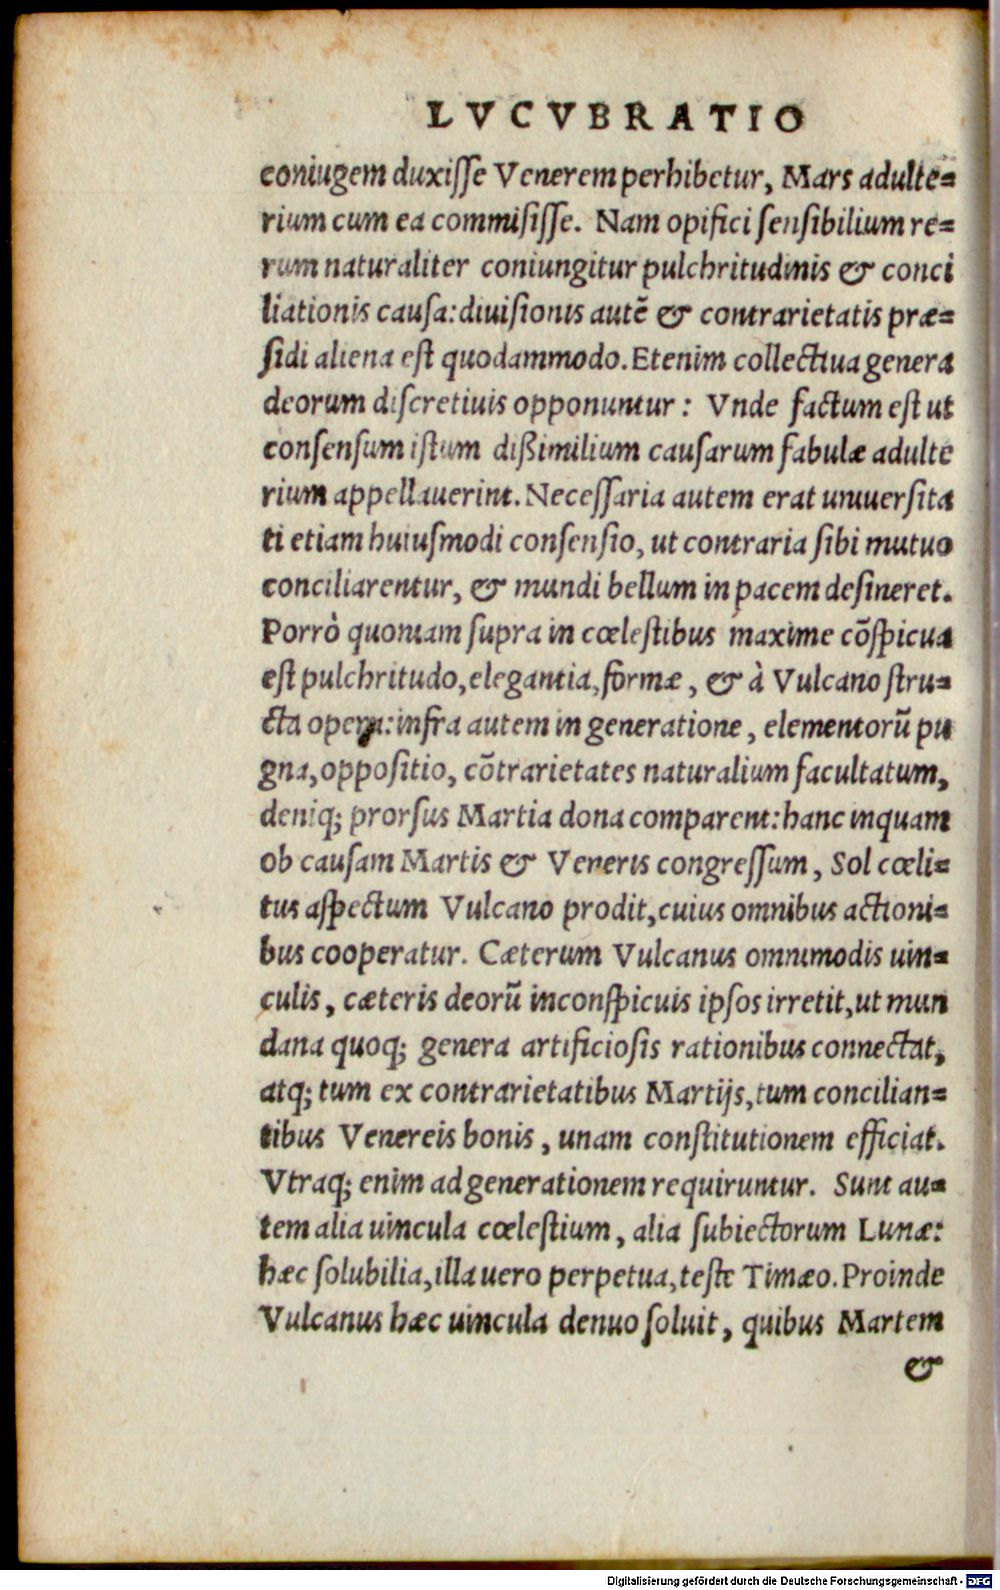 LVCVBRATIO
coniugem duxisse Venerem perhibetur, Mars adulte=
rium cum ea commisisse. Nam opifici sensibilium re=
rum naturaliter coniungitur pulchritudinis & conci
liationis causa: diuisionis autẽ & contrarietatis præ=
sidi aliena est quodammodo. Etenim collectiua genera
deorum discretiuis opponuntur: Vnde factum est ut
consensum istum dißimilium causarum fabulæ adulte
rium appellauerint. Necessaria autem erat uniuersita
ti etiam huiusmodi consensio, ut contraria sibi mutuo
conciliarentur, & mundi bellum in pacem desineret.
Porrò quoniam supra in cœlestibus maxime cõspicua
est pulchritudo, elegantia, formæ, & à Vulcano stru=
cta opera: infra autem in generatione, elementorũ pu
gna, oppositio, cõtrarietates naturalium facultatum,
deniq; prorsus Martia dona comparent: hanc inquam
ob causam Martis & Veneris congressum, Sol cœli=
tus aspectum Vulcano prodit, cuius omnibus actioni=
bus cooperatur. Cæterum Vulcanus omnimodis uin=
culis, cæteris deorũ inconspicuis ipsos irretit, ut mun
dana quoq; genera artificiosis rationibus connectat,
atq; tum ex contrarietatibus Martijs, tum concilian=
tibus Venereis bonis, unam constitutionem efficiat.
Vtraq; enim ad generationem requiruntur. Sunt au=
tem alia uincula cœlestium, alia subiectorum Lunæ:
hæc solubilia, illa uero perpetua, teste Timæo. Proinde
Vulcanus hæc uincula denuo soluit, quibus Martem
&
Digitalisierung gefördert durch die Deutsche Forschungsgemeinschaft - DFG